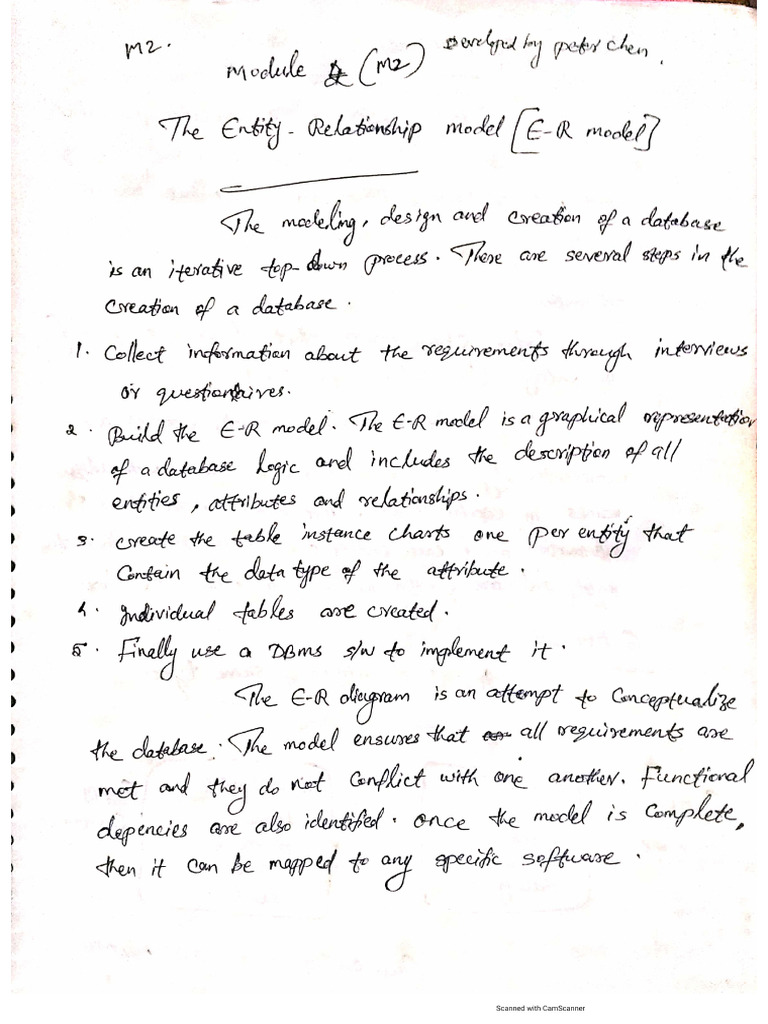 M2.
Developed by peter chen.
Module (M2)
The Entity-Relationship model [E-R model]
The modeling, design and creation of a database
is an iterative top-down process. There are several steps in the
creation of a database.
1. Collect information about the requirements through interviews
or questionnaires.
2. Build the E-R model. The E-R model is a graphical representation
of a database logic and includes the description of all
entities, attributes and relationships.
3. create the table instance charts one per entity that
contain the data type of the attribute.
4. Individual tables are created.
5. Finally use a DBMS s/w to implement it.
The E-R diagram is an attempt to conceptualize
the database. The model ensures that all requirements are
met and they do not conflict with one another. Functional
depencies are also identified. once the model is complete,
then it can be mapped to any specific software.
Scanned with CamScanner